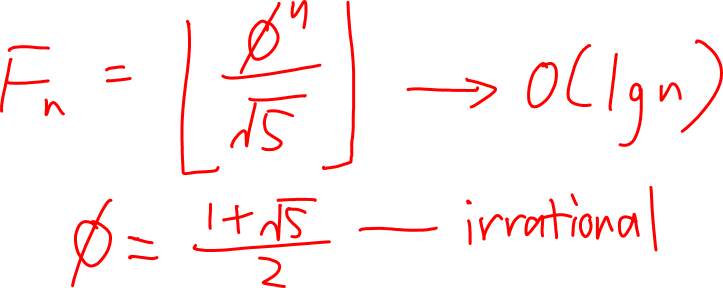 F_n = ⌊φ^n / √5⌋ → O(lg n)
φ = (1 + √5) / 2 — irrational